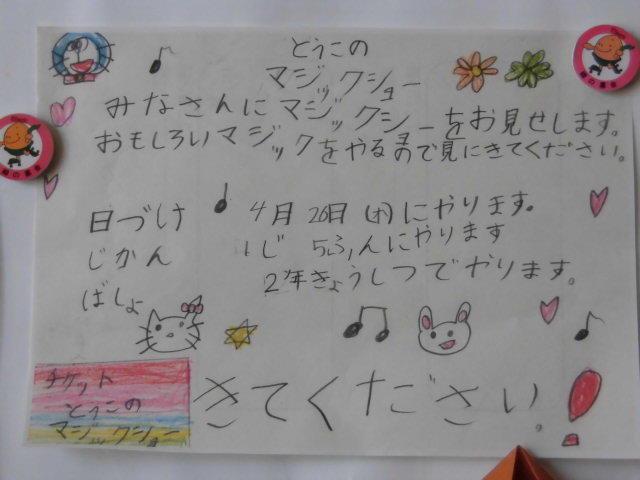 とうこの
マジックショー
みなさんにマジックショーをお見せします。
おもしろいマジックをやるので見にきてください。
日づけ 4月26日(木)にやります。
じかん 1じ 5ふんにやります
ばしょ 2年きょうしつでやります。
チケット
とうこの
マジックショー
きてください。